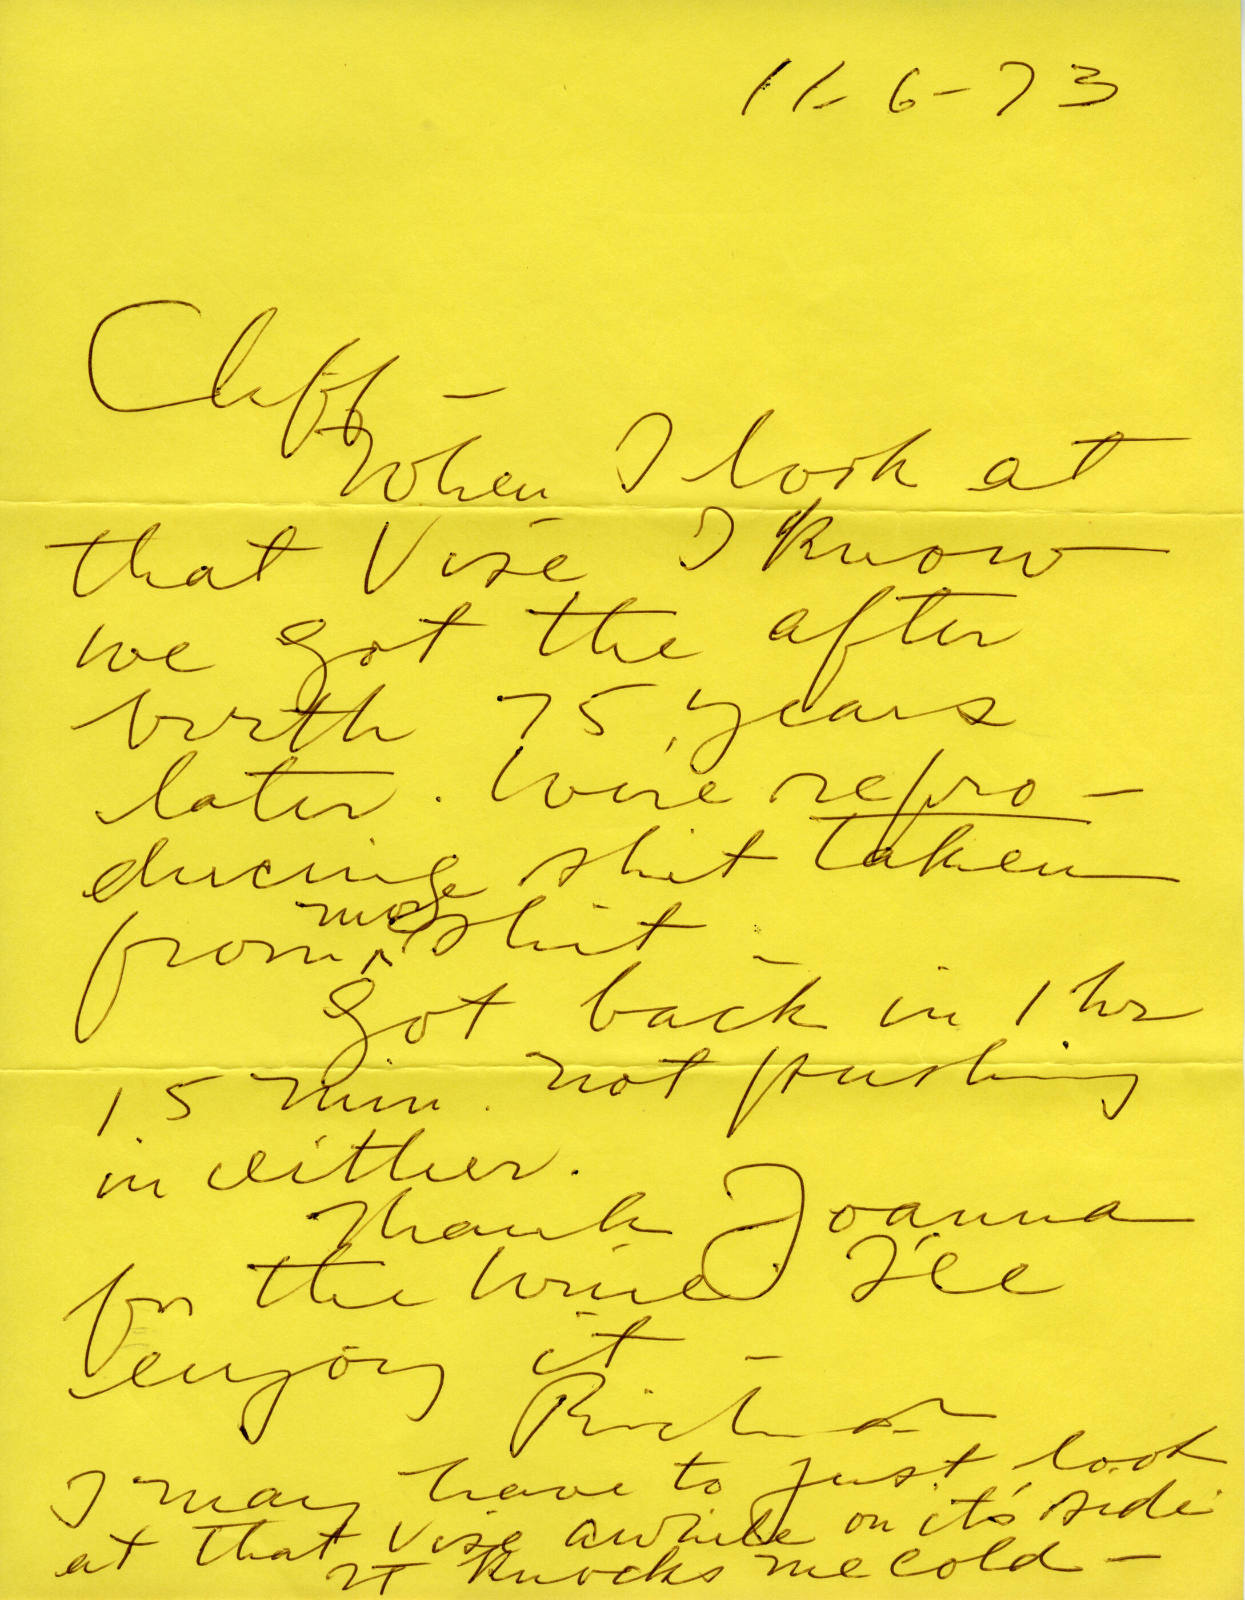 11-6-73
Cliff —
When I look at
that Vise I know
we got the after
birth 75 years
later. We're repro-
ducing shit taken
from more shit —
Got back in 1 hr
15 min. not pushing
in either.
Thank Joanna
for the wine I'll
enjoy it —
Richard
I may have to just look
at that Vise awhile on it's side
It knocks me cold —